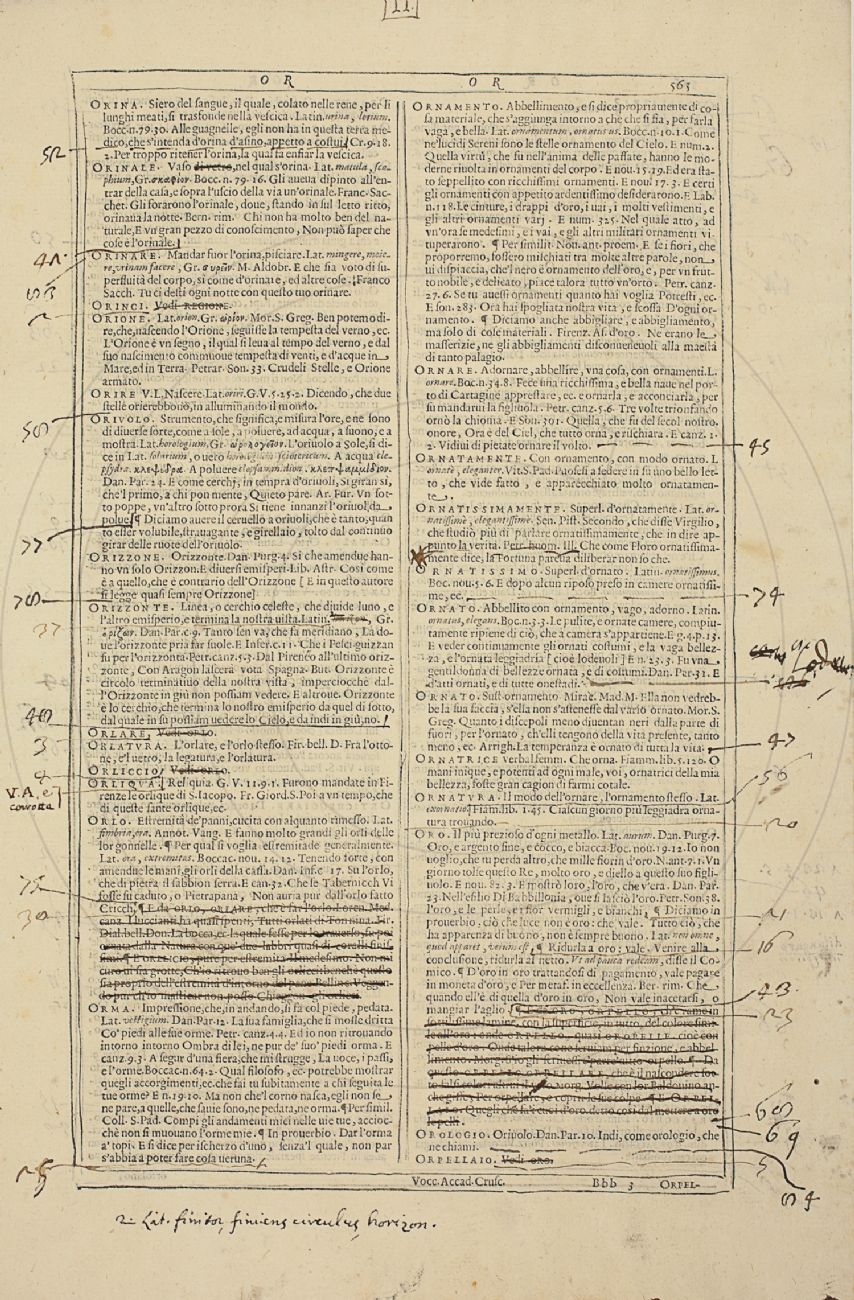 11
O R
O R 563
ORINA. Siero del sangue, il quale, colato nelle rene, per li
lunghi meati, si trasfonde nella vescica. Latin. urina, lotium.
Bocc. n. 79. 30. Alle guagnelle, egli non ha in questa terra me-
dico, che s'intenda d'orina d'asino, appetto a costui. Cr. 9. 18.
2. Per troppo ritener l'orina, la qual fa enfiar la vescica.
ORINALE. Vaso di vetro, nel qual s'orina. Lat. matula, sca-
phium, Gr. σκαφίον. Bocc. n. 79. 16. Gli aveva dipinto all'en-
trar della casa, e sopra l'uscio della via un'orinale. Franc. Sac-
chet. Gli forarono l'orinale, doue, stando in sul letto ritto,
orinaua la notte. Bern. rim. Chi non ha molto ben del na-
turale, E vn gran pezzo di conoscimento, Non può saper che
cose è l'orinale.
ORINARE. Mandar fuor l'orina, pisciare. Lat. mingere, meie-
re, urinam facere, Gr. οὐρεῖν. M. Aldobr. E che sia voto di su-
perfluità del corpo, sì come d'orinare, ed altre cose. Franco
Sacch. Tu ci desti ogni notte con questo tuo orinare.
ORINCI. Vedi REGIONE.
ORIONE. Lat. orion. Gr. ὠρίων. Mor. S. Greg. Ben potemo di-
re, che, nascendo l'Orione, seguisse la tempesta del verno, ec.
L'Orione è vn segno, il qual si leua al tempo del verno, e dal
suo nascimento commuoue tempesta di venti, e d'acque in
Mare, ed in Terra. Petrar. Son. 33. Crudeli Stelle, e Orione
armato.
ORIRE V.L. Nascere. Lat. oriri. G.V. 5. 25. 2. Dicendo, che due
stelle orierebbono, in alluminando il mondo.
ORIVOLO. Strumento, che significa, e misura l'ore, e ne sono
di diuerse sorte, come a sole, a poluere, ad acqua, a suono, e a
mostra. Lat. horologium, Gr. ὡρολόγιον. L'oriuolo a Sole, si di-
ce in Lat. solarium, o uero horologium sciotericum. A acqua cle-
psydra. κλεψύδρα. A poluere
Dan. Par. 24. E come cerchj, in tempra d'oriuoli, Si giran sì,
che'l primo, a chi pon mente, Quieto pare. Ar. Fur. Vn sot-
to poppe, vn'altro sotto prora Si tiene innanzi l'oriuol da
polue. ¶ Diciamo auere il ceruello a oriuoli, che è tanto, quan
to esser volubile, strauagante, e girellaio, tolto dal continuo
girar delle ruote dell'oriuolo.
ORIZZONE. Orizzonte. Dan. Purg. 4. Sì che amendue han-
no vn solo Orizzon. E diuersi emisperi. Lib. Astr. Così come
è a quello, che è contrario dell'Orizzone [ E in questo autore
si legge quasi sempre Orizzone]
ORIZZONTE. Linea, o cerchio celeste, che diuide l'uno, e
l'altro emisperio, e termina la nostra uista. Latin. horizon, Gr.
ὁρίζων. Dan. Par. c. 9. Tanto sen va, che fa meridiano, Là do-
ue l'orizzonte pria far suole. E Infer. c. 11. Che i Pesci guizzan
su per l'orizzonta. Petr. canz. 5. 3. Dal Pireneo all'ultimo oriz-
zonte, Con Aragon lascerà vota Spagna. But. Orizzonte è
circolo terminatiuo della nostra vista, imperciocchè dal-
l'Orizzonte in giù non possiam vedere. E altroue. Orizzonte
è lo cerchio, che termina lo nostro emisperio da quel di sotto,
dal quale in su possiam uedere lo Cielo, e da indi in giù, no.
ORLARE, Vedi ORLO.
ORLATURA. L'orlare, e l'orlo stesso. Fir. bell. D. Fra l'otto-
ne, e'l uetro, la legatura, e l'orlatura.
ORLICCIO. Vedi ORLO.
ORLIQUA. Reliqua. G. V. 11. 9. 1. Furono mandate in Fi-
renze le orlique di S. Iacopo. Fr. Giord. S. Poi a vn tempo, che
di queste sante orlique, ec.
ORLO. Estremità de' panni, cucita con alquanto rimesso. Lat.
fimbria, ora. Annot. Vang. E fanno molto grandi gli orli delle
lor gonnelle. ¶ Per qual si voglia estremità generalmente.
Lat. ora, extremitas. Boccac. nou. 14. 12. Tenendo forte, con
amendue le mani, gli orli della cassa. Dan. Inf. c. 17. Su l'orlo,
che di pietra il sabbion serra. E can. 32. Che se Tabernicch Vi
fosse su caduto, o Pietrapana, Non auria pur dall'orlo fatto
Cricch.
ORMA. Impressione, che, in andando, si fa col piede, pedata.
Lat. vestigium. Dan. Par. 12. La sua famiglia, che si mosse dritta
Co' piedi alle sue orme. Petr. canz. 4. 4. Ed io non ritrouando
intorno intorno Ombra di lei, ne pur de' suo' piedi orma. E
canz. 9. 3. A seguir d'una fiera, che mi strugge, La uoce, i passi,
e l'orme. Boccac. n. 64. 2. Qual filosofo, ec. potrebbe mostrar
quegli accorgimenti, ec. che fai tu subitamente a chi seguita le
tue orme? E n. 19. 10. Ma non che'l corno nasca, egli non se
ne pare, a quelle, che sauie sono, ne pedata, ne orma. ¶ Per simil.
Coll. S. Pad. Compi gli andamenti miei nelle uie tue, accioc-
chè non si muouano l'orme mie. ¶ In prouerbio. Dar l'orma
a' topi. E si dice per ischerzo d'uno, senza'l quale, non par
s'abbia a poter fare cosa ueruna.
ORNAMENTO. Abbellimento, e si dice propriamente di co-
sa materiale, che s'aggiunga intorno a che che si sia, per farla
vaga, e bella. Lat. ornamentum, ornatus us. Bocc. n. 10. 1. Come
ne' lucidi Sereni sono le stelle ornamento del Cielo. E num. 2.
Quella virtù, che fu nell'anima delle passate, hanno le mo-
derne riuolta in ornamenti del corpo. E nou. 15. 19. Ed era sta-
to seppellito con ricchissimi ornamenti. E nou. 17. 3. E certi
gli ornamenti con appetito ardentissimo desiderarono. E Lab.
n. 118. Le cinture, i drappi d'oro, i uai, i molti vestimenti, e
gli altri ornamenti varj. E num. 325. Nel quale atto, ad
vn'ora se medesimi, e i vai, e gli altri militari ornamenti vi-
tuperarono. ¶ Per similit. Nou. ant. proem. E se i fiori, che
proporremo, fossero mischiati tra molte altre parole, non
ui dispiaccia, che'l nero è ornamento dell'oro, e, per vn frut-
to nobile, e delicato, piace talora tutto vn'orto. Petr. canz.
27. 6. Se tu auessi ornamenti quanto hai voglia Potresti, ec.
E son. 283. Ora hai spogliata nostra vita, e scossa D'ogni or-
namento. ¶ Diciamo anche abbigliare, e abbigliamento,
ma solo di cose materiali. Firenz. As. d'oro. Ne erano le
masserizie, ne gli abbigliamenti disconueneuoli alla maestà
di tanto palagio.
ORNARE. Adornare, abbellire, vna cosa, con ornamenti. L.
ornare. Boc. n. 34. 8. Fece una ricchissima, e bella naue nel por-
to di Cartagine apprestare, ec. e ornarla, e acconciarla, per
su mandarui la figliuola. Petr. canz. 5. 6. Tre volte trionfando
ornò la chioma. E Son. 301. Quella, che fu del secol nostro.
onore, Ora è del Ciel, che tutto orna, e rischiara. E canz. 1.
2. Vidiui di pietate ornare il volto.
ORNATAMENTE. Con ornamento, con modo ornato. L.
ornatè, eleganter. Vit. S. Pad. Puosesi a sedere in su uno bello let-
to, che vide fatto, e apparecchiato molto ornatamen-
te.
ORNATISSIMAMENTE. Superl. d'ornatamente. Lat. or-
natissimè, elegantissimè. Sen. Pist. Secondo, che disse Virgilio,
che studiò più di parlare ornatissimamente, che in dire ap-
punto la verità. Petr. huom. Ill. Che come Floro ornatissima-
mente dice, la Fortuna pareua diliberar non so che.
ORNATISSIMO. Superl. d'ornato. Latin. ornatissimus.
Boc. nou. 5. 6. E dopo alcun riposo preso in camere ornatissi-
me, ec.
ORNATO. Abbellito con ornamento, vago, adorno. Latin.
ornatus, elegans. Boc. n. 3. 3. Le pulite, e ornate camere, compiu-
tamente ripiene di ciò, che a camera s'appartiene. E g. 4. p. 13.
E veder continuamente gli ornati costumi, e la vaga bellez-
za, e l'ornata leggiadria [ cioè lodeuoli ] E n. 23. 3. Fu vna
gentildonna di bellezze ornata, e di costumi. Dan. Par. 31. E
d'atti ornati, e di tutte onestadi.
ORNATO. Sust. ornamento. Mirac. Mad. M. Ella non vedreb-
be la sua faccia, s'ella non s'astenesse dal vario ornato. Mor. S.
Greg. Quanto i discepoli meno diuentan neri dalla parte di
fuori, per l'ornato, ch'elli tengono della vita presente, tanto
meno, ec. Arrigh. La temperanza è ornato di tutta la vita.
ORNATRICE verbal femm. Che orna. Fiamm. lib. 5. 120. O
mani inique, e potenti ad ogni male, voi, ornatrici della mia
bellezza, foste gran cagion di farmi cotale.
ORNATVRA. Il modo dell'ornare, l'ornamento stesso. Lat.
exornatio. Fiam. lib. 1. 45. Ciascun giorno più leggiadra orna-
tura trouando.
ORO. Il più prezioso d'ogni metallo. Lat. aurum. Dan. Purg. 7.
Oro, e argento fine, e cocco, e biacca. Boc. nou. 19. 12. Io non
uoglio, che tu perda altro, che mille fiorin d'oro. N. ant. 7. 1. Vn
giorno tolse questo Re, molto oro, e diello a questo suo figli-
uolo. E nou. 82. 3. E mostrò loro, l'oro, che v'era. Dan. Par.
23. Nell'esilio Di Babbillonia, oue si lasciò l'oro. Petr. Son. 38.
l'oro, e le perle, e i fior vermigli, e bianchi, ¶ Diciamo in
prouerbio, ciò che luce non è oro: che vale. Tutto ciò, che
ha apparenza di buono, non è sempre buono. Lat. non omne,
quod apparet, verum est, ¶ Ridurla a oro; vale. Venire alla
conclusione, ridurla al netto. Vt ad pauca redeam, disse il Co-
mico. ¶ D'oro in oro trattandosi di pagamento, vale pagare
in moneta d'oro, e Per metaf. in eccellenza. Ber. rim. Che
quando ell'è di quella d'oro in oro, Non vale inacetarsi, o
mangiar l'aglio.
OROLOGIO. Oriuolo. Dan. Par. 10. Indi, come orologio, che
ne chiami.
ORPELLAIO. Vedi ORO.
Voc. Accad. Crusc. Bbb 3 ORPEL-
52
41
63
50
77
70
37
40
3
4
V. A. e
corrotta
75
30
25
45
74
47
56
20
21
16
43
23
60
69
5
64
2 Lat. finitor, finiens circulus, horizon.